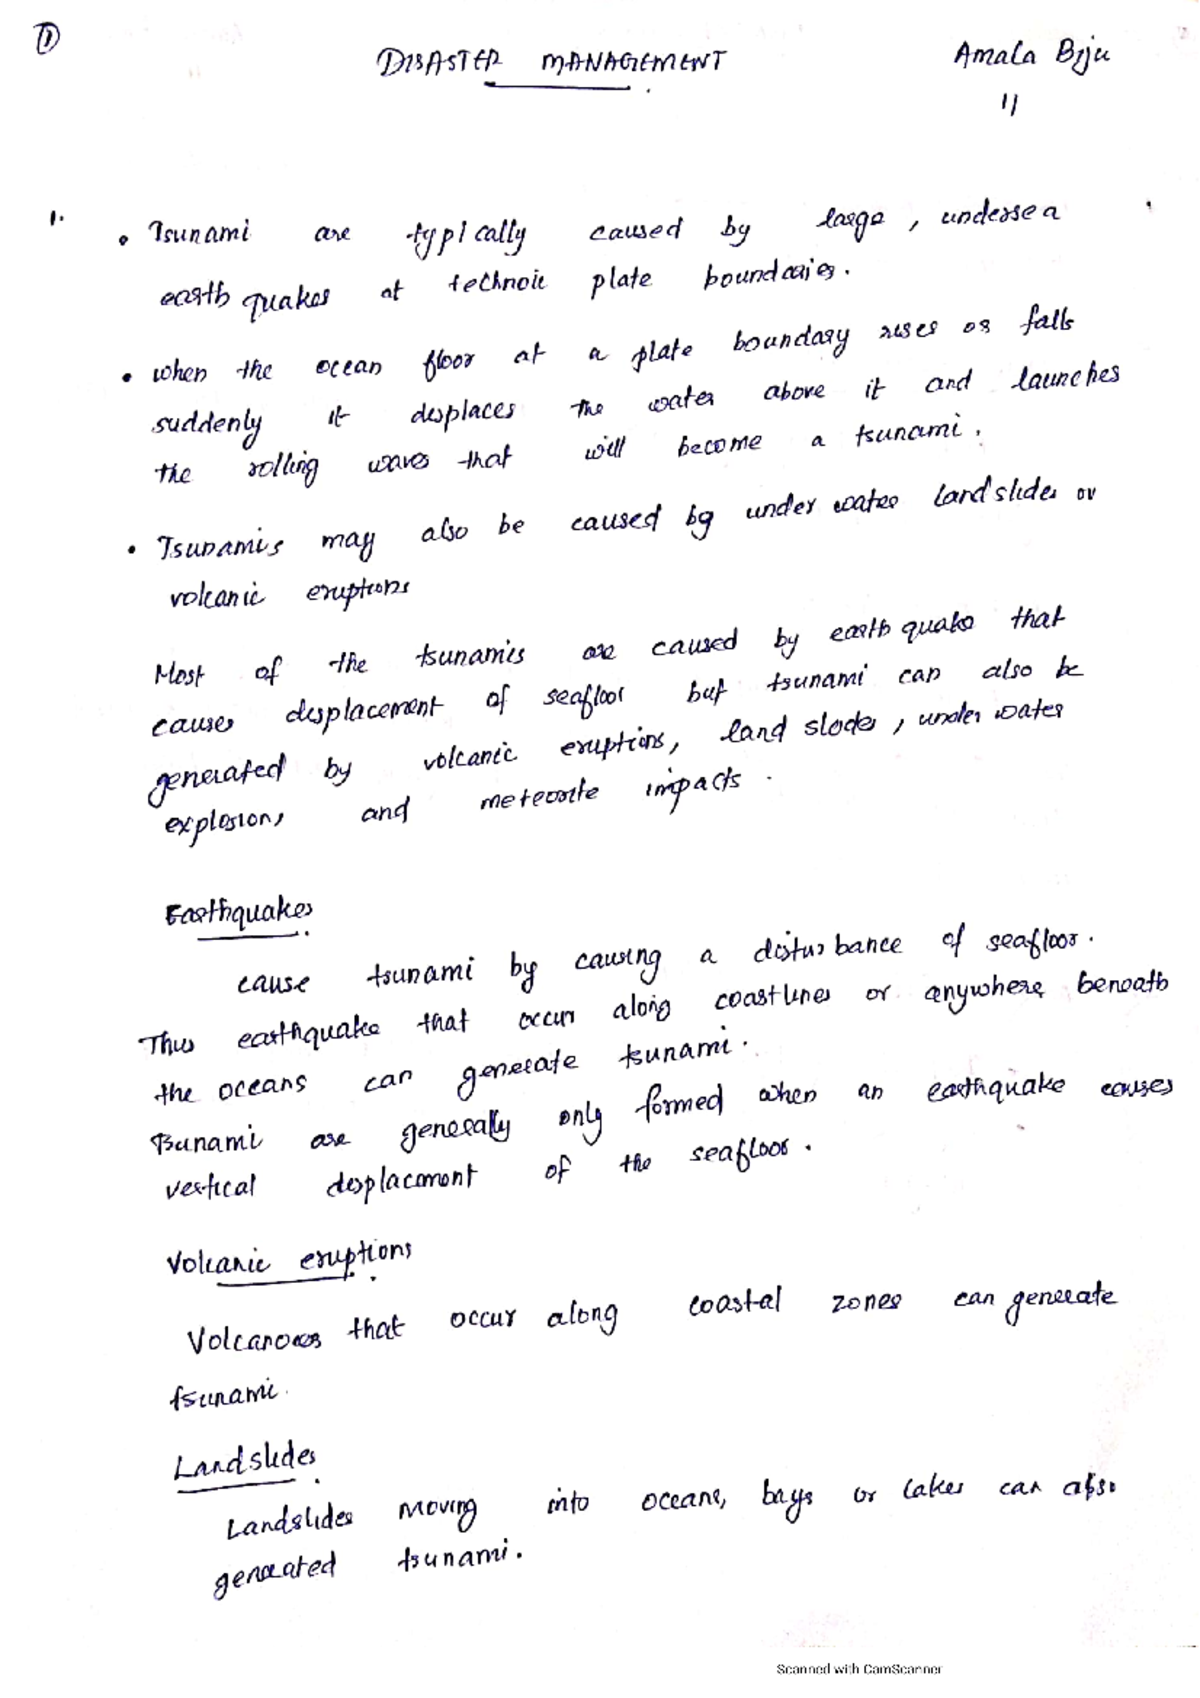 1
DISASTER MANAGEMENT
Amala Biju
11
1.
• Tsunami are typically caused by large, undersea
earthquakes at technoic plate boundaries.
• when the ocean floor at a plate boundary rises or falls
suddenly it displaces the water above it and launches
the rolling waves that will become a tsunami.
• Tsunamis may also be caused by under water landslides or
volcanic eruptions
Most of the tsunamies are caused by earthquake that
causes displacement of seafloor but tsunami can also be
generated by volcanic eruptions, land slodes, under water
explosions and meteorite impacts.
Earthquakes
cause tsunami by causing a disturbance of seafloor.
Thus earthquake that occur along coastlines or anywhere beneath
the oceans can generate tsunami.
Tsunami are generally only formed when an earthquake causes
vertical displacement of the seafloor.
Volcanic eruptions
Volcanoes that occur along coastal zones can generate
tsunami.
Landslides
Landslides moving into oceans, bays or lakes can also
generated tsunami.
Scanned with CamScanner